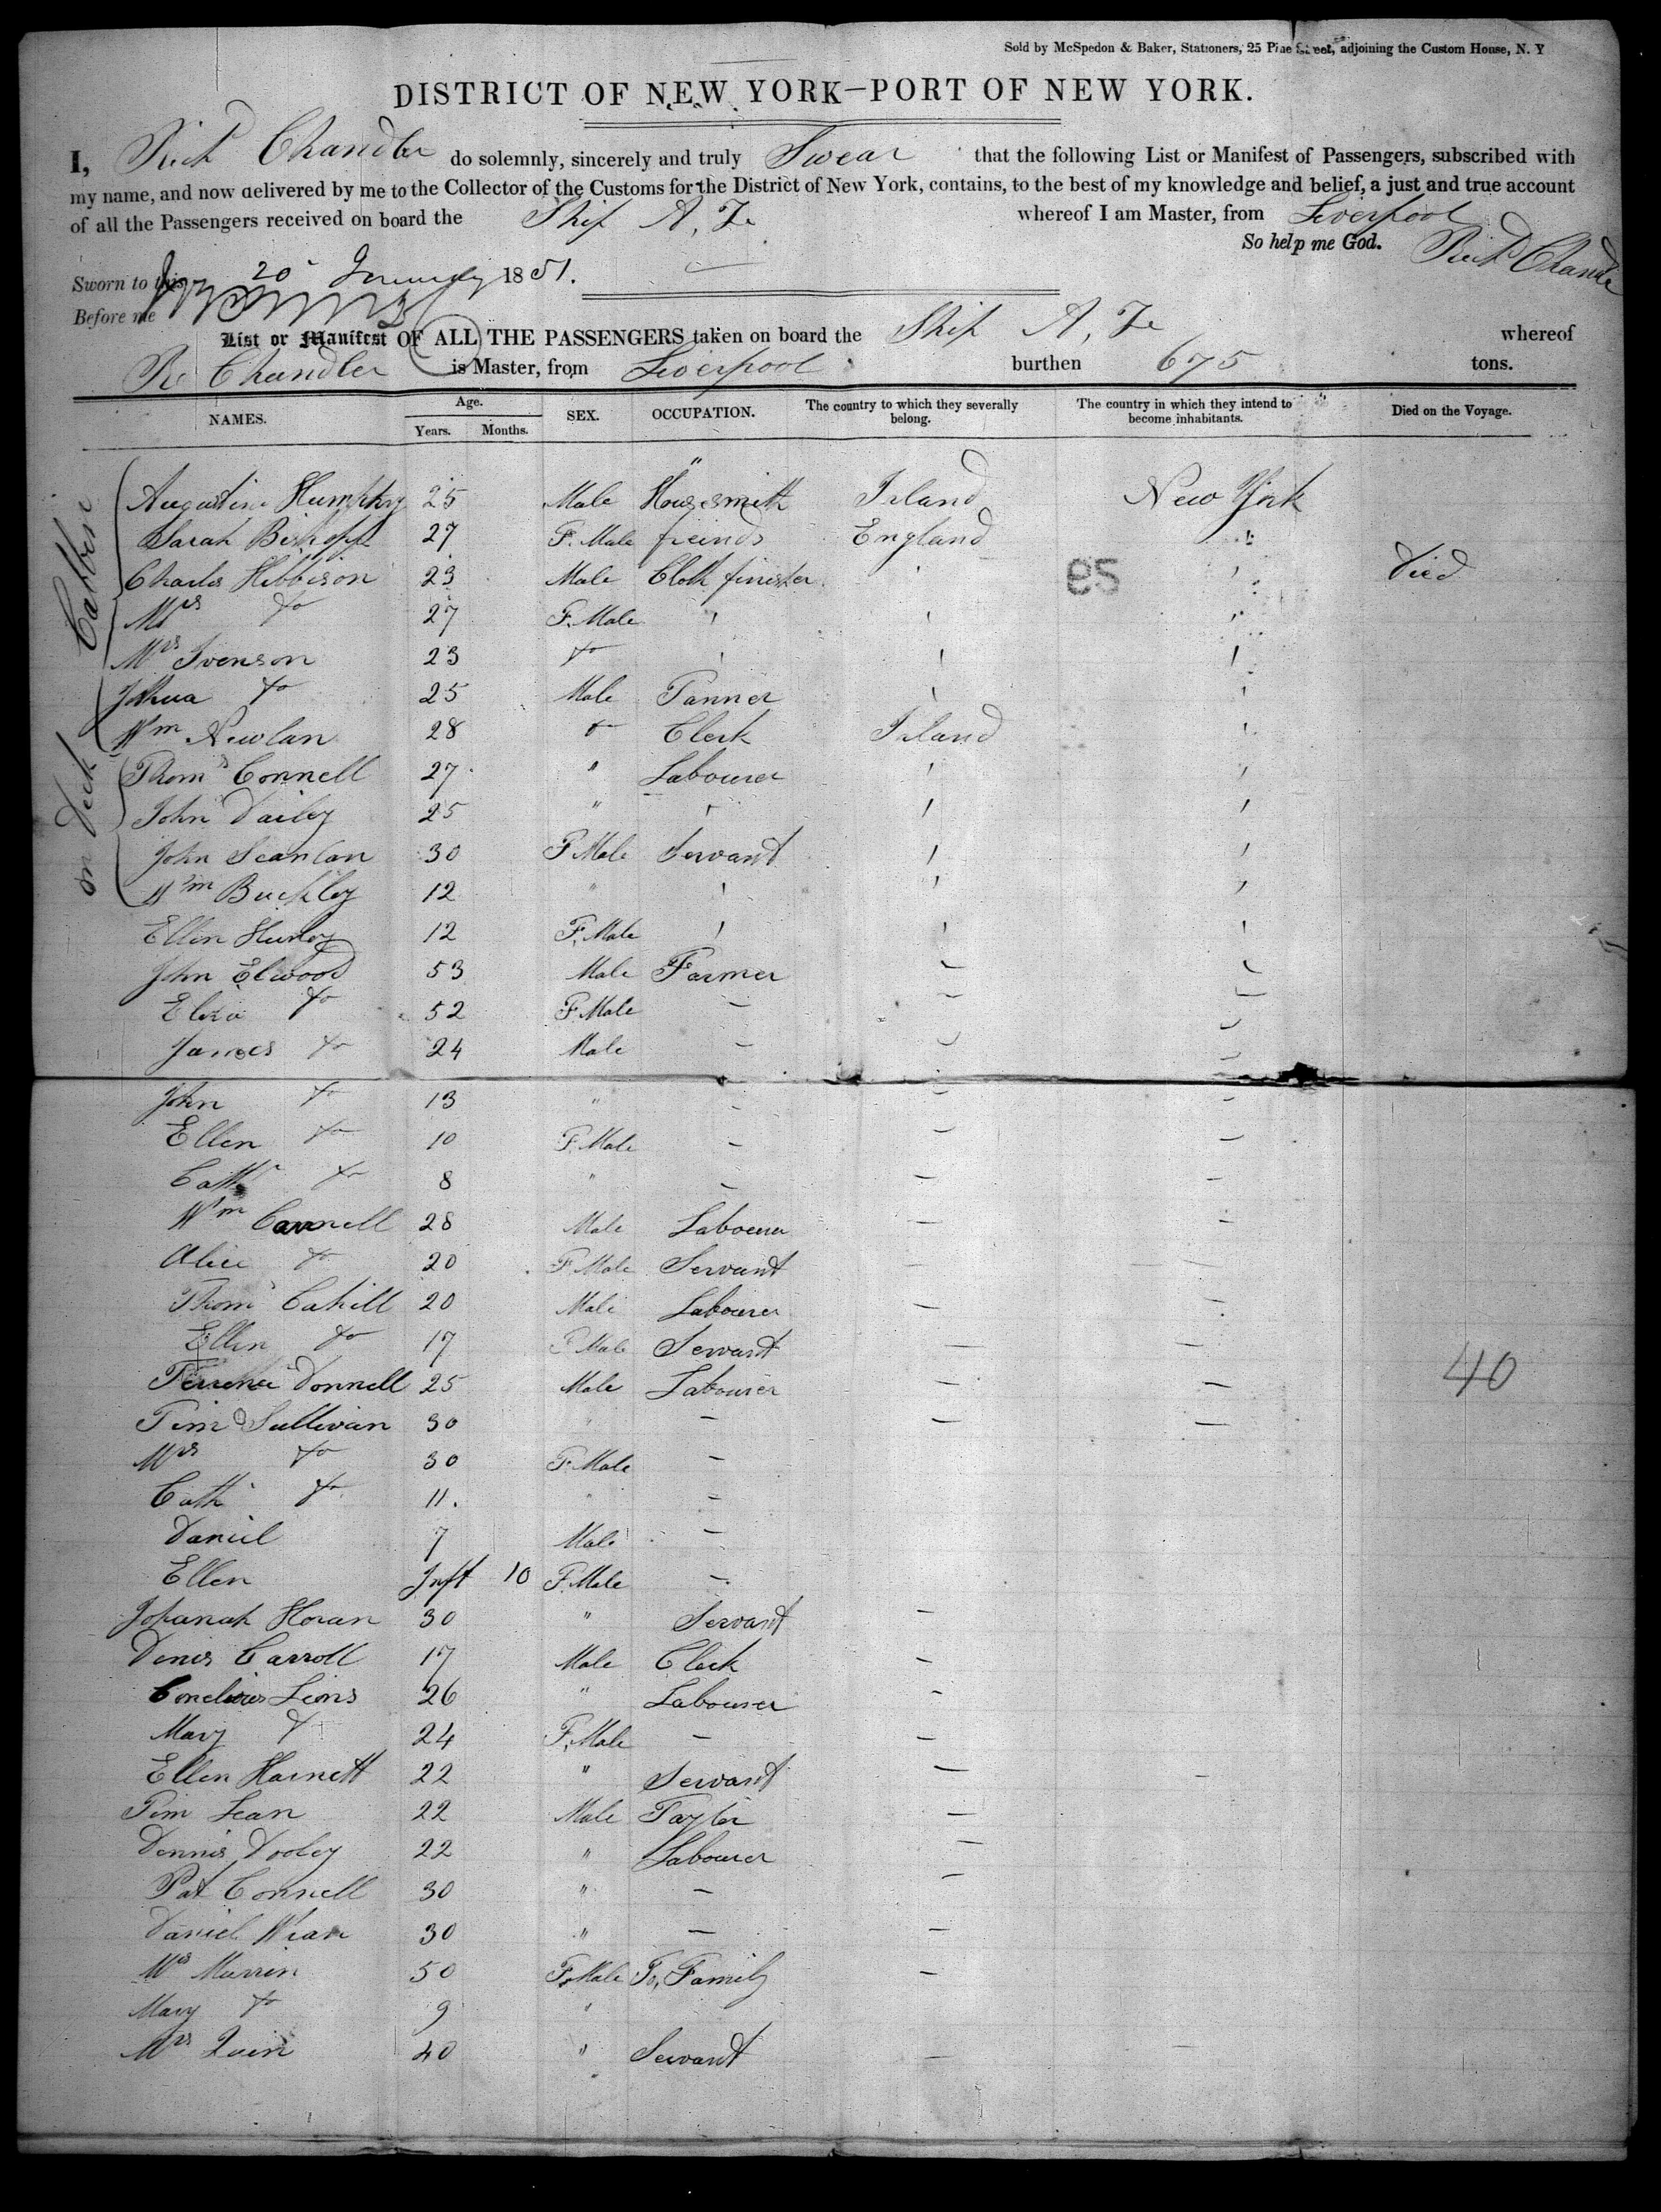 Sold by McSpedon & Baker, Stationers, 25 Pine Street, adjoining the Custom House, N. Y
DISTRICT OF NEW YORK—PORT OF NEW YORK.
I, Richd Chandler do solemnly, sincerely and truly Swear that the following List or Manifest of Passengers, subscribed with
my name, and now delivered by me to the Collector of the Customs for the District of New York, contains, to the best of my knowledge and belief, a just and true account
of all the Passengers received on board the Ship A. Z. whereof I am Master, from Liverpool
So help me God. Richd Chandler
Sworn to this 20 January 1851.
Before me
List or Manifest OF ALL THE PASSENGERS taken on board the Ship A, Z. whereof
R Chandler is Master, from Liverpool burthen 675 tons.
NAMES. Age. Years. Months. SEX. OCCUPATION. The country to which they severally belong. The country in which they intend to become inhabitants. Died on the Voyage.
on Deck Cabben
Augustine Humphry 25 Male Irland New York
Sarah Bishopp 27 F. Male freinds England "
Charles Hibbison 23 Male Cloth finisher ' ' Died
95
Mrs do 27 F. Male ' ' '
Mrs Ivenson 23 do ' ' '
Joshua do 25 Male Tanner ' '
Wm Newlan 28 do Clerk Irland '
Thoms Connell 27 " Labourer ' '
John Dailey 25 " ' ' '
John Scanlan 30 F Male Servant ' '
Wm Buckley 12 " ' ' '
Ellen Hurley 12 F. Male ' ' '
John Elwood 53 Male Farmer — —
Eliza do 52 F. Male — — —
James do 24 Male — — —
John do 13 " — — —
Ellen do 10 F. Male — — —
Cath do 8 " — — —
Wm Connell 28 Male Labourer — —
Alice do 20 F Male Servant — —
Thoms Cahill 20 Male Labourer — —
Ellen do 17 F Male Servant — —
40
Terrence Donnell 25 Male Labourer — —
Tim O Sullivan 30 " — — —
Mrs do 30 F. Male —
Cath do 11. " —
Daniel 7 Male —
Ellen Inft 10 F. Male —
Johanah Horan 30 " Servant —
Denis Carroll 17 Male Clerk —
Cornelious Lions 26 " Labourer —
Mary do 24 F. Male — —
Ellen Harnett 22 " Servant — —
Tim Lean 22 Male Taylor —
Dennis Dooley 22 " Labourer —
Pat Connell 30 " — —
Daniel 30 " — —
Mrs Murrin 50 F. Male To, Family —
Mary do 9 "
Mrs Quin 40 " Servant — —